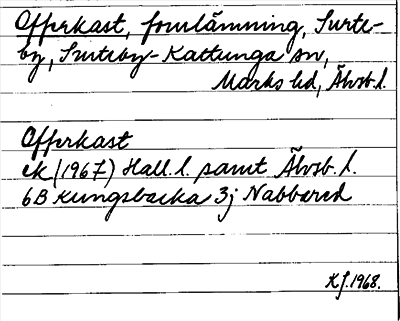 Offerkast, fornlämning, Surte-
by, Surteby-Kattunga sn,
Marks hd, Älvsb. l.
Offerkast
ek (1967) Hall. l. samt Älvsb. l.
6B Kungsbacka 3j Nabbared
KJ. 1968.